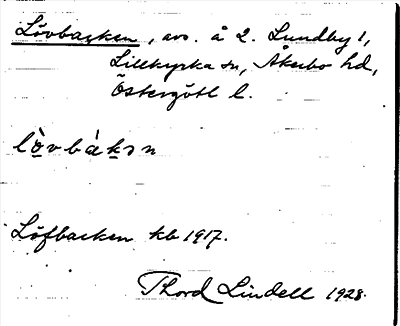 Lövbacken, avs. å 2. Lundby 1,
Lillkyrka sn, Åkerbo hd,
Östergötl l.
lövbakən
Löfbacken kb 1917.
Thord Lindell 1928.